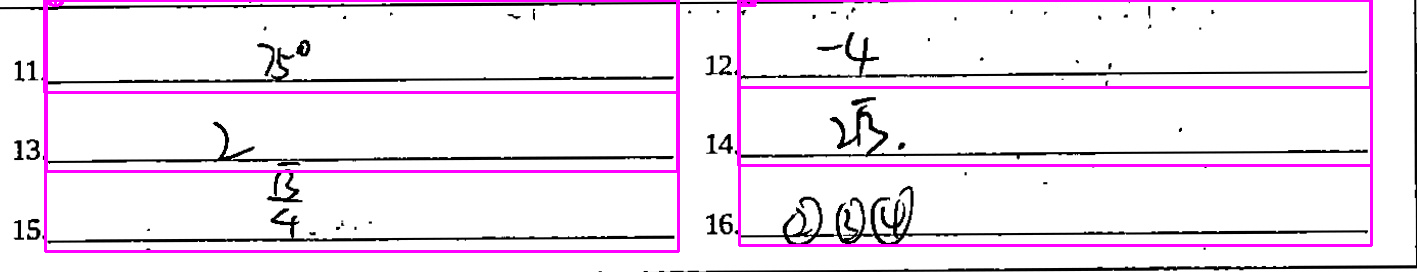 11. 75°
12. -4
13. 2
14. 2√3.
15. √3/4
16. ②③④